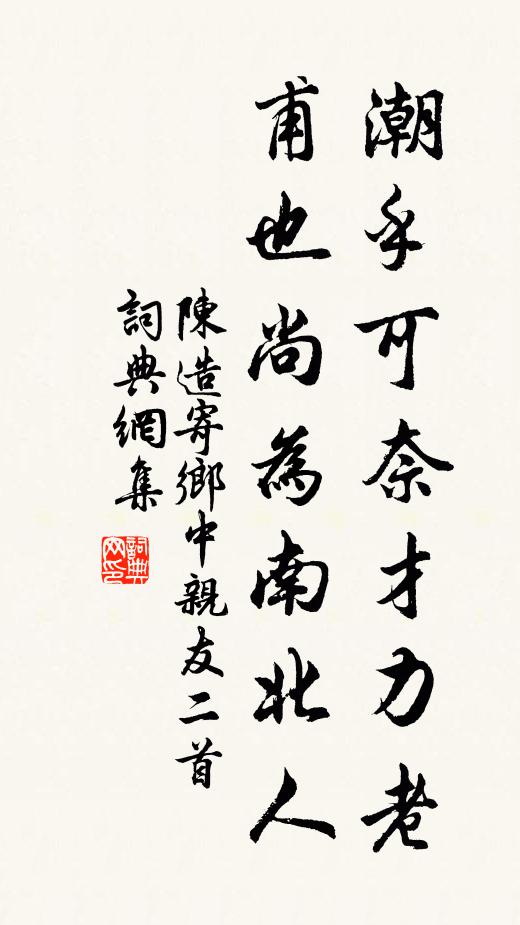 潮乎可奈才力老
甫也尚為南北人
陳造寄鄉中親友二首
詞典網集
詞典
网印